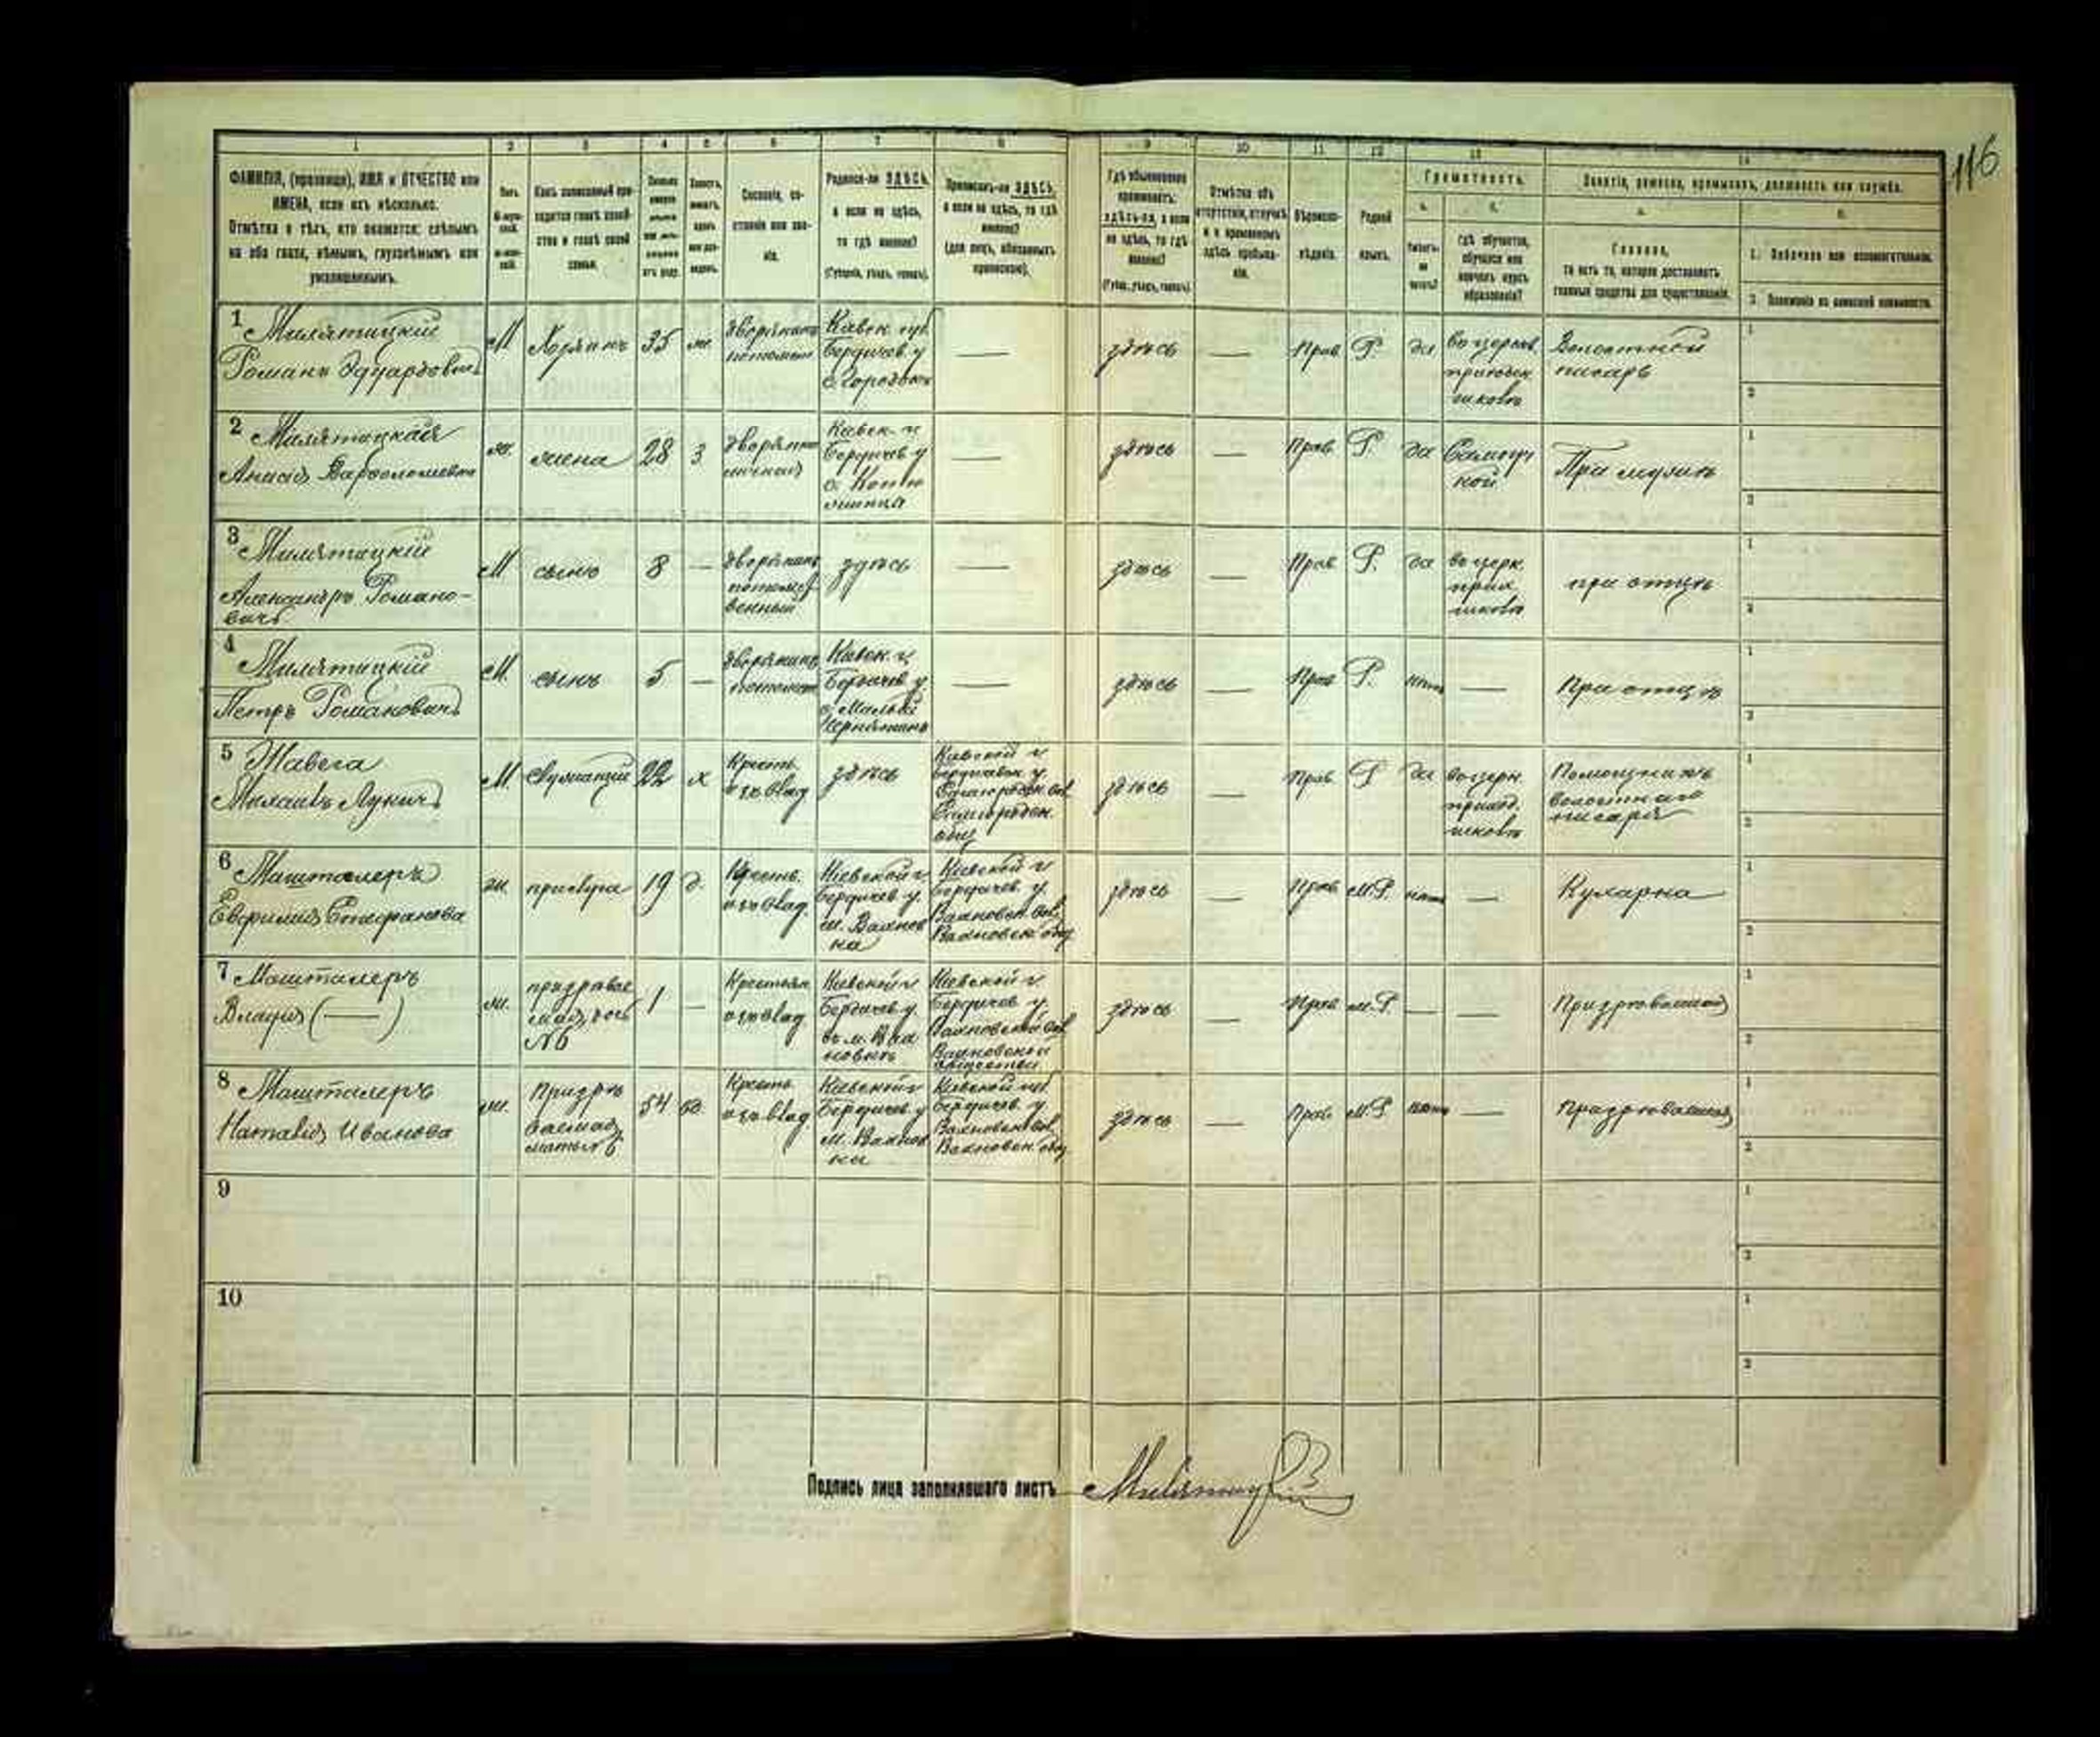 116
1 2 3 4 5 6 7 8 9 10 11 12 13 14
ФАМИЛІЯ, (прозвище), ИМЯ и ОТЧЕСТВО или
ИМЕНА, если ихъ нѣсколько.
Отмѣтка о тѣхъ, кто окажется: слѣпымъ
на оба глаза, нѣмымъ, глухонѣмымъ или
умалишеннымъ.
Полъ.
Какъ записанный при-
ходится главѣ хозяй-
ства и главѣ своей
семьи.
Сословіе, со-
стояніе или зва-
ніе.
Родился-ли ЗДѢСЬ,
а если не здѣсь,
то гдѣ именно?
(Губернія, уѣздъ, городъ).
Приписанъ-ли ЗДѢСЬ,
а если не здѣсь, то гдѣ
именно?
(для лицъ, обязанныхъ
припиской).
Гдѣ обыкновенно
проживаетъ:
здѣсь-ли, а если
не здѣсь, то гдѣ
именно?
(Губ., уѣздъ, городъ).
Отмѣтка объ
отсутствіи, отлучкѣ
и о временномъ
здѣсь пребыва-
ніи.
Вѣроиспо-
вѣданіе.
Родной
языкъ.
Грамотность.
а.
б.
Умѣетъ-
ли
читать?
Гдѣ обучается,
обучался или
кончилъ курсъ
образованія?
Занятіе, ремесло, промыселъ, должность или служба.
а.
б.
Главное,
то есть то, которое доставляетъ
главныя средства для существованія.
1. Побочное или вспомогательное.
2. Положеніе по воинской повинности.
1
Милятицкій
Романъ Эдуардовичъ
М
Хозяинъ
35
ж
Дворянинъ
потомст
Кіевск. губ.
Бердичев. у
с. Городокъ
—
здѣсь
—
Прав
Р.
да
въ церков.
приходск.
школѣ
Волостной
писарь
1
2
2
Милятицкая
Анисія Варфоломеевна
ж.
жена
28
З
Дворянка
личная
Кіевск. г
Бердичев у
—
здѣсь
—
Прав.
Р.
да
При мужѣ
1
2
3
Милятицкій
Александръ Романо-
вичъ
М
сынъ
8
—
Дворянинъ
потомст
венный
здѣсь
—
здѣсь
—
Прав
Р.
да
въ церк.
прих
школѣ
при отцѣ
1
2
4
Милятицкій
Петръ Романовичъ
М.
сынъ
5
—
Дворянинъ
потомст
Кіевск. г.
Бердичев у.
с. Малый
Чернятинъ
—
здѣсь
—
Прав
Р.
нѣтъ
—
При отцѣ
1
2
5
Жавега
Михаилъ Лукичъ
М.
служащій
22
х
Крест.
здѣсь
Кіевской г
Бердичев. у.
Самгородск. вол
Самгородск.
общ
здѣсь
—
Прав.
Р
да
въ церк.
приход.
школѣ
Помощникъ
волостнаго
писаря
1
2
6
Машталеръ
Евфимія Стефанова
ж.
прислуга
19
д.
Крест.
Кіевской г
Бердичев у.
м. Вахнов
ка
Кіевской г
Бердичев. у.
Вахновск. вол
Вахновск общ
здѣсь
—
Прав.
М.Р.
нѣтъ
—
Кухарка
1
2
7
Машталеръ
( — )
ж.
№6
1
—
Кіевской г
Бердичев у.
Кіевской г
Бердичев у.
Вахновской вол
Вахновскаго
общества
здѣсь
—
Прав
М.Р.
—
—
Призрѣваемая
1
2
8
Машталеръ
Наталія Иванова
ж.
Призрѣ
ваемая
мать №6
54
вд.
Крест.
Кіевской г
Бердичев у
м. Вахнов
ка
Кіевской губ
Бердичев. у.
Вахновск вол
Вахновск. общ
здѣсь
—
Прав.
М.Р
нѣтъ
—
Призрѣваемая
1
2
9
1
2
10
1
2
Подпись лица заполнявшаго листъ Милятицкій